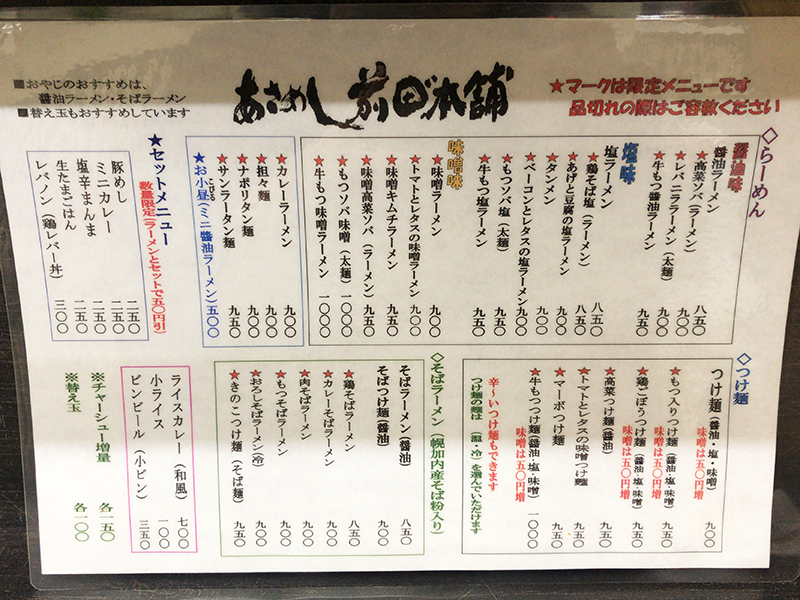 ■おやじのおすすめは、
醤油ラーメン・そばラーメン
■替え玉もおすすめしています
あさめし前田本舗
★マークは限定メニューです
品切れの際はご容赦ください
◇らーめん
醤油味
醤油ラーメン 八五〇
★高菜ソバ(ラーメン) 九〇〇
★レバニララーメン 九〇〇
★もつソバ醤油(太麺) 九五〇
★牛もつ醤油ラーメン 九五〇
塩味
塩ラーメン 八五〇
★鶏そば塩(ラーメン) 八五〇
★あげと豆腐の塩ラーメン 八五〇
★タンメン 九〇〇
★ベーコンとレタスの塩ラーメン 九〇〇
★もつソバ塩(太麺) 九五〇
★牛もつ塩ラーメン 九五〇
味噌味
★味噌ラーメン 九〇〇
★トマトとレタスの味噌ラーメン 九〇〇
★味噌キムチラーメン 九五〇
★味噌高菜ソバ(ラーメン) 九五〇
★もつソバ味噌(太麺) 一〇〇〇
★牛もつ味噌ラーメン 一〇〇〇
★カレーラーメン 九〇〇
★担々麺 九〇〇
★ナポリタン麺 九五〇
★サンラータン麺 九五〇
★お小昼(ミニ醤油ラーメン) 五〇〇
★セットメニュー
数量限定(ラーメンとセットで五〇円引)
豚めし 二五〇
ミニカレー 二五〇
塩辛まんま 二五〇
生たまごはん 二五〇
レバノン(鶏レバー丼) 三〇〇
◇つけ麺
つけ麺(醤油・塩・味噌) 九〇〇
味噌は五〇円増
★もつ入りつけ麺(醤油・塩・味噌) 九五〇
味噌は五〇円増
★鶏ごぼうつけ麺(醤油・塩・味噌) 九五〇
味噌は五〇円増
★高菜つけ麺(醤油) 九五〇
★トマトとレタスの味噌つけ麺 九五〇
★マーボつけ麺 九五〇
★牛もつつけ麺(醤油・塩・味噌) 一〇〇〇
味噌は五〇円増
辛〜いつけ麺もできます
つけ麺の麺は(温・冷)を選んでいただけます
◇そばラーメン(幌加内産そば粉入り)
そばラーメン(醤油) 八五〇
そばつけ麺(醤油) 九〇〇
★鶏そばラーメン 八五〇
★カレーそばラーメン 九〇〇
★肉そばラーメン 九〇〇
★もつそばラーメン 九〇〇
★おろしそばラーメン(冷) 九〇〇
★きのこつけ麺(そば麺) 九五〇
ライスカレー(和風) 七〇〇
小ライス 一〇〇
ビンビール(小ビン) 三五〇
※チャーシュー増量 各一五〇
※替え玉 各一〇〇